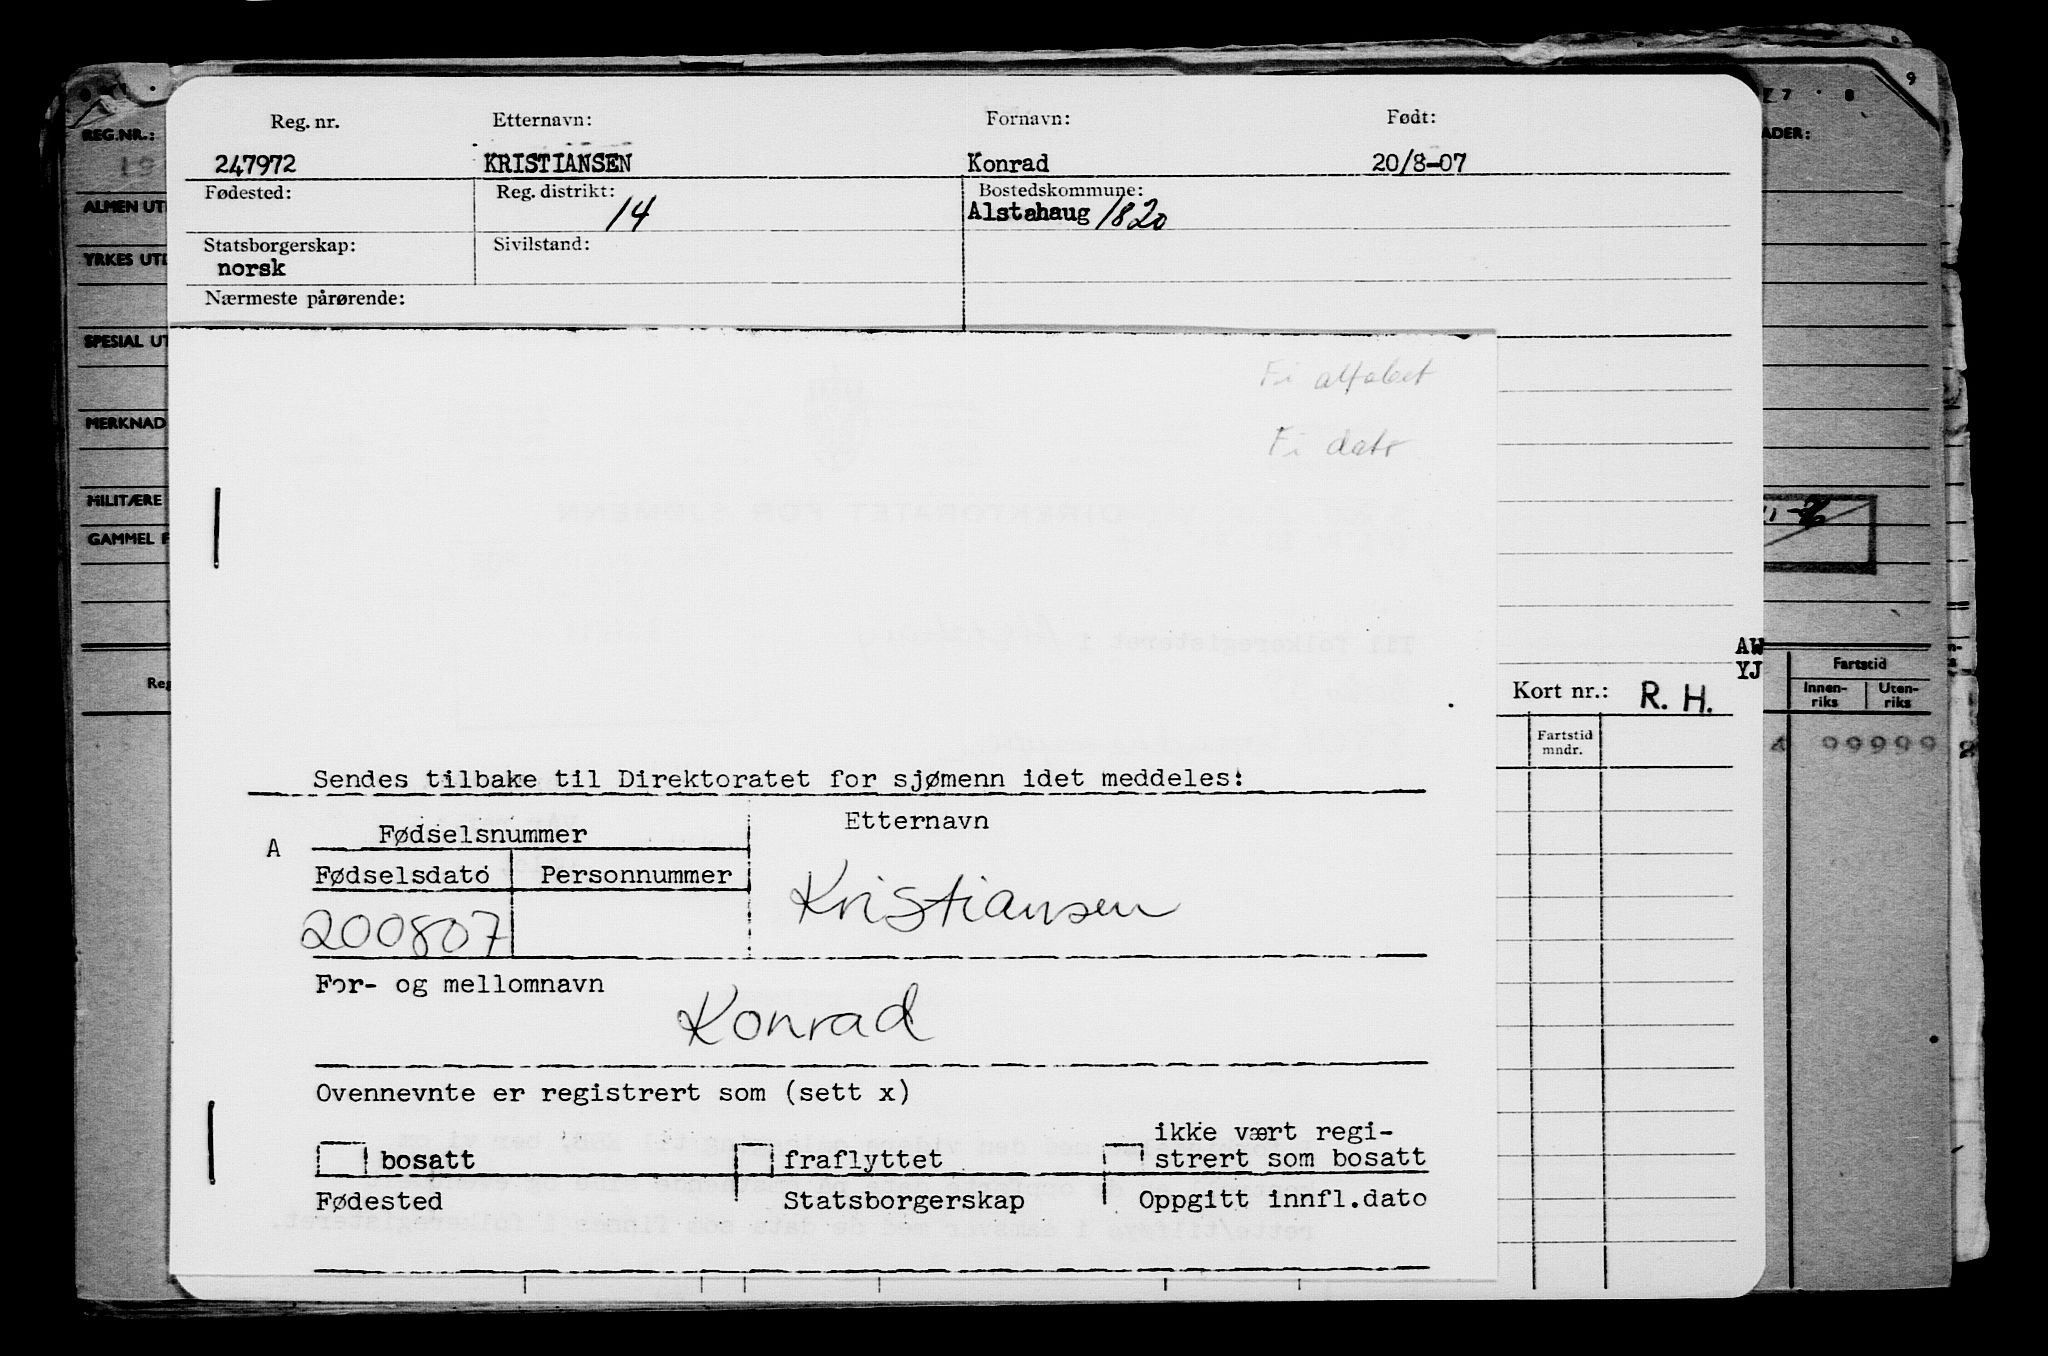 Reg. nr. Etternavn: Fornavn: Født:
247972 KRISTIANSEN Konrad 20/8-07
Fødested: Reg. distrikt: 14 Bostedskommune:
Alstahaug 1820
Statsborgerskap: Sivilstand:
norsk
Nærmeste pårørende:
Fi alfabet
Fi dato
Kort nr.: R. H.
Fartstid
mndr.
Sendes tilbake til Direktoratet for sjømenn idet meddeles:
A Fødselsnummer Etternavn
Fødselsdato Personnummer
200807 Kristiansen
For- og mellomnavn
Konrad
Ovennevnte er registrert som (sett x)
bosatt fraflyttet ikke vært regi-
strert som bosatt
Fødested Statsborgerskap Oppgitt innfl.dato
REG.NR.:
ALMEN
YRKES
SPESIAL
MILITÆRE
GAMMEL
9
7 8
AW
YJ
Fartstid
Innen-
riks
Uten-
riks
99999